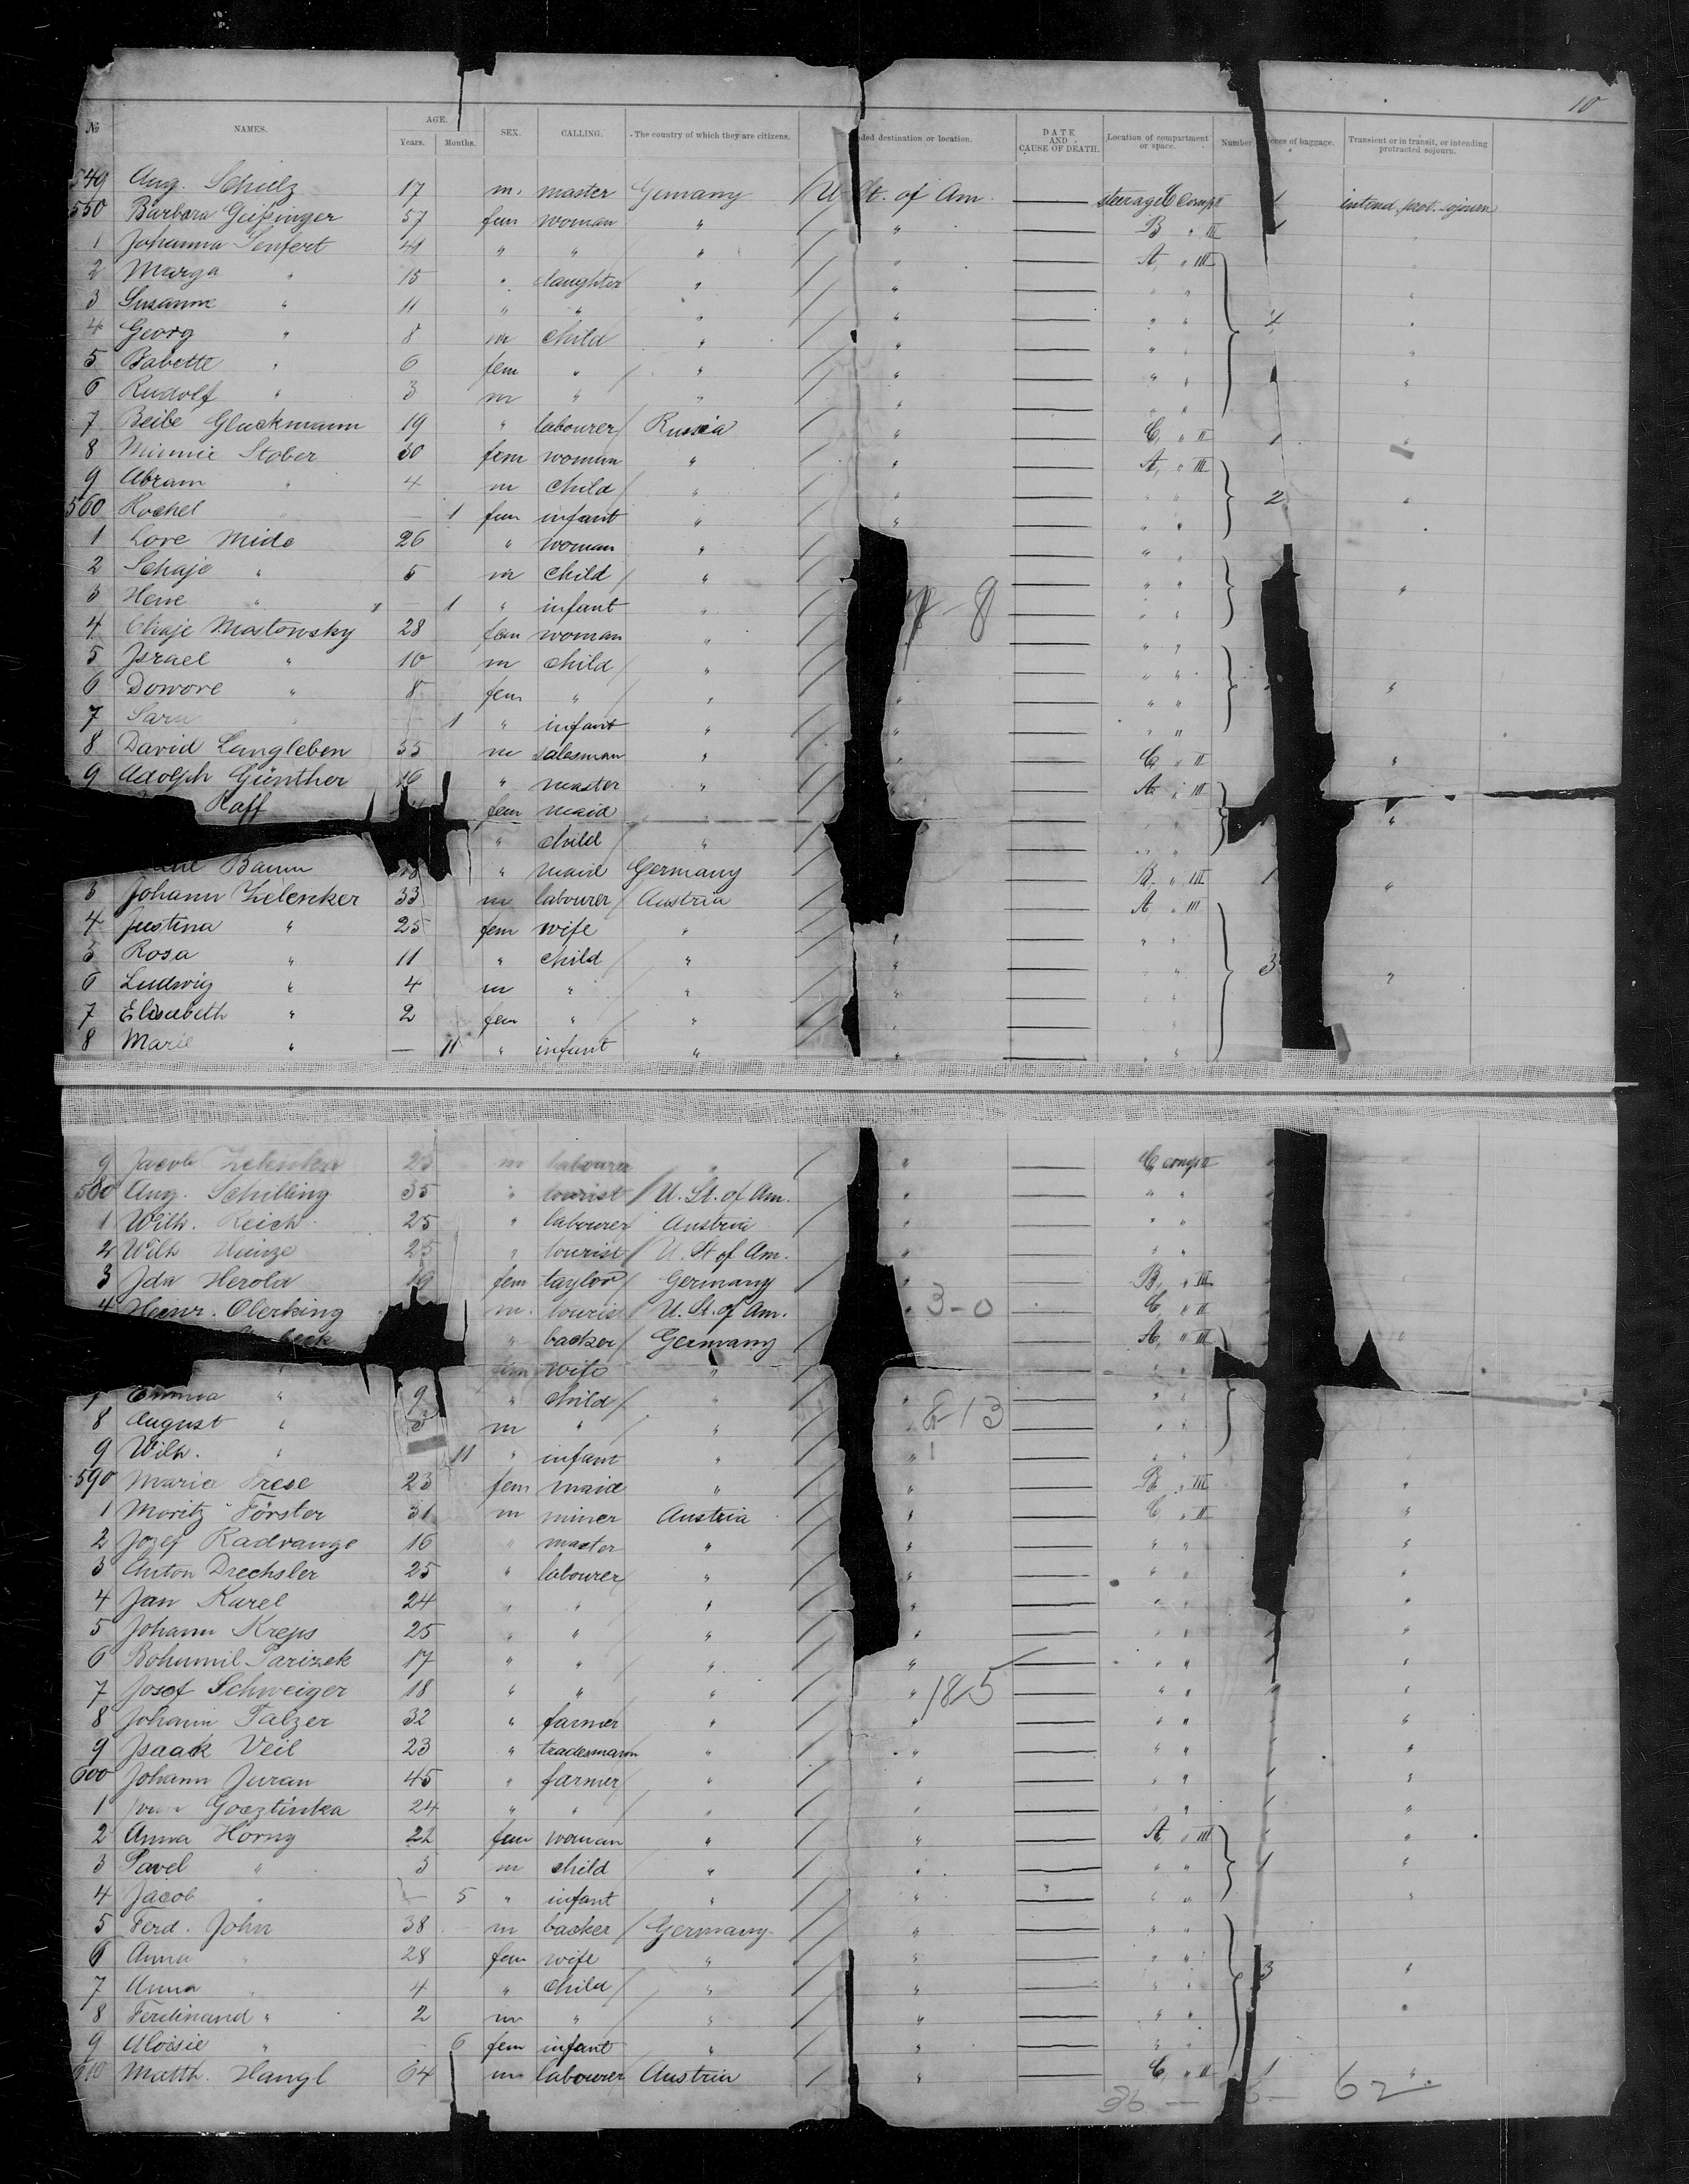 10
№ NAMES. AGE. Years. Months. SEX. CALLING. The country of which they are citizens. ded destination or location. DATE AND CAUSE OF DEATH. Location of compartment or space. Number ces of baggage. Transient or in transit, or intending protracted sojourn.
549 Aug. Schulz 17 m. master Germany / U St. of Am. — steerage C Comp II 1 intend. prot. sojourn
550 Barbara Geißinger 57 fem woman " / " — B " III 1
1 Johanna Senfert 41 " " " / " — A " III
2 Marga " 15 " daughter " / " — " "
3 Susanne " 11 " " " / " — " " "
4 Georg " 8 m child " / " — " " "
5 Babette " 6 fem " / " / " — " " "
6 Rudolf " 3 m " " / " — " " "
7 Beile Gluckmann 19 " labourer / Russia / " — C " II 1 "
8 Minnie Stober 30 fem woman " / " — A " III
9 Abram " 4 m child / " / " — " " 2 "
560 Rochel " — 1 fem infant " / " — " "
1 Lore Mide 26 " woman " / — " "
2 Schaje " 5 m child / " / — " " "
3 Hene " — 1 " infant " / — " "
4 Chaje Mostowsky 28 fem woman " / — " "
5 Israel " 10 m child / " / — " "
6 Dowore " 8 fem " / " / " — " " "
7 Sara " 1 " infant " / " — " "
8 David Langleben 53 m salesman " / " — C " II "
9 Adolph Günther 16 " master " / " — A " III
Raff fem maid " / — " " "
" child " / — " "
Baum 18 " maid Germany / — B " III 1 "
3 Johann Zelenker 33 m labourer / Austria / — A " III
4 Justina " 25 fem wife " / " — " "
5 Rosa " 11 " child / " / " — " " 3
6 Ludwig " 4 m " " / " — " " "
7 Elisabeth " 2 fem " / " / — " "
8 Marie " — 11 " infant " / " — " "
9 Jacob Zelenker 25 m labourer " / " — C comp II
580 Aug. Schilling 35 " tourist / U. St. of Am. " — " "
1 Wilh. Reich 25 " labourer Austria / " — " "
2 Wilh Heinze 25 " tourist / U. St of Am. " — " "
3 Ida Herold 19 fem taylor / Germany / " — B " III
4 Heinr. Olerking m. tourist / U. St. of Am. " 3-0 — C " II
beck " backer / Germany / — A " III
" fem wife " / — " "
7 Emma " 9 " child / " / " — " "
8 August " 3 m " / " / " — " "
9 Wilh. " 11 " infant " / " — " "
590 Maria Frese 23 fem maid " / " — B " III "
1 Moritz Förster 31 m miner Austria / " — C " II "
2 Jozef Radvange 16 " master " / " — " " "
3 Anton Drechsler 25 " labourer / " / " — " " "
4 Jan Karel 24 " " " / " — " " "
5 Johann Kreps 25 " " " / " — " " "
6 Bohumil Parizek 17 " " / " / " — " " "
7 Josef Schweiger 18 " " " / " 185 — " " "
8 Johann Talzer 32 " farmer " / " — " " "
9 Isaak Veil 23 " tradesmann " / " — " " "
600 Johann Juran 45 " farmer / " / " — " " "
1 Goeztinka 24 " " / " / " — " " 1 "
2 Anna Horny 22 fem woman " / " — A " III "
3 Pavel " 3 m child " / " — " " 1 "
4 Jacob " — 5 " infant " / " — " " "
5 Ferd. John 38 m backer / Germany / " — " "
6 Anna " 28 fem wife " / " — " "
7 Anna " 4 " child / " / " — " " 3 "
8 Ferdinand " 2 m " / " / " — " " "
9 Aloisie " — 6 fem infant " / " — " "
610 Matth. Hangl 64 m labourer Austria / " — C " II 1 "
36 — 62